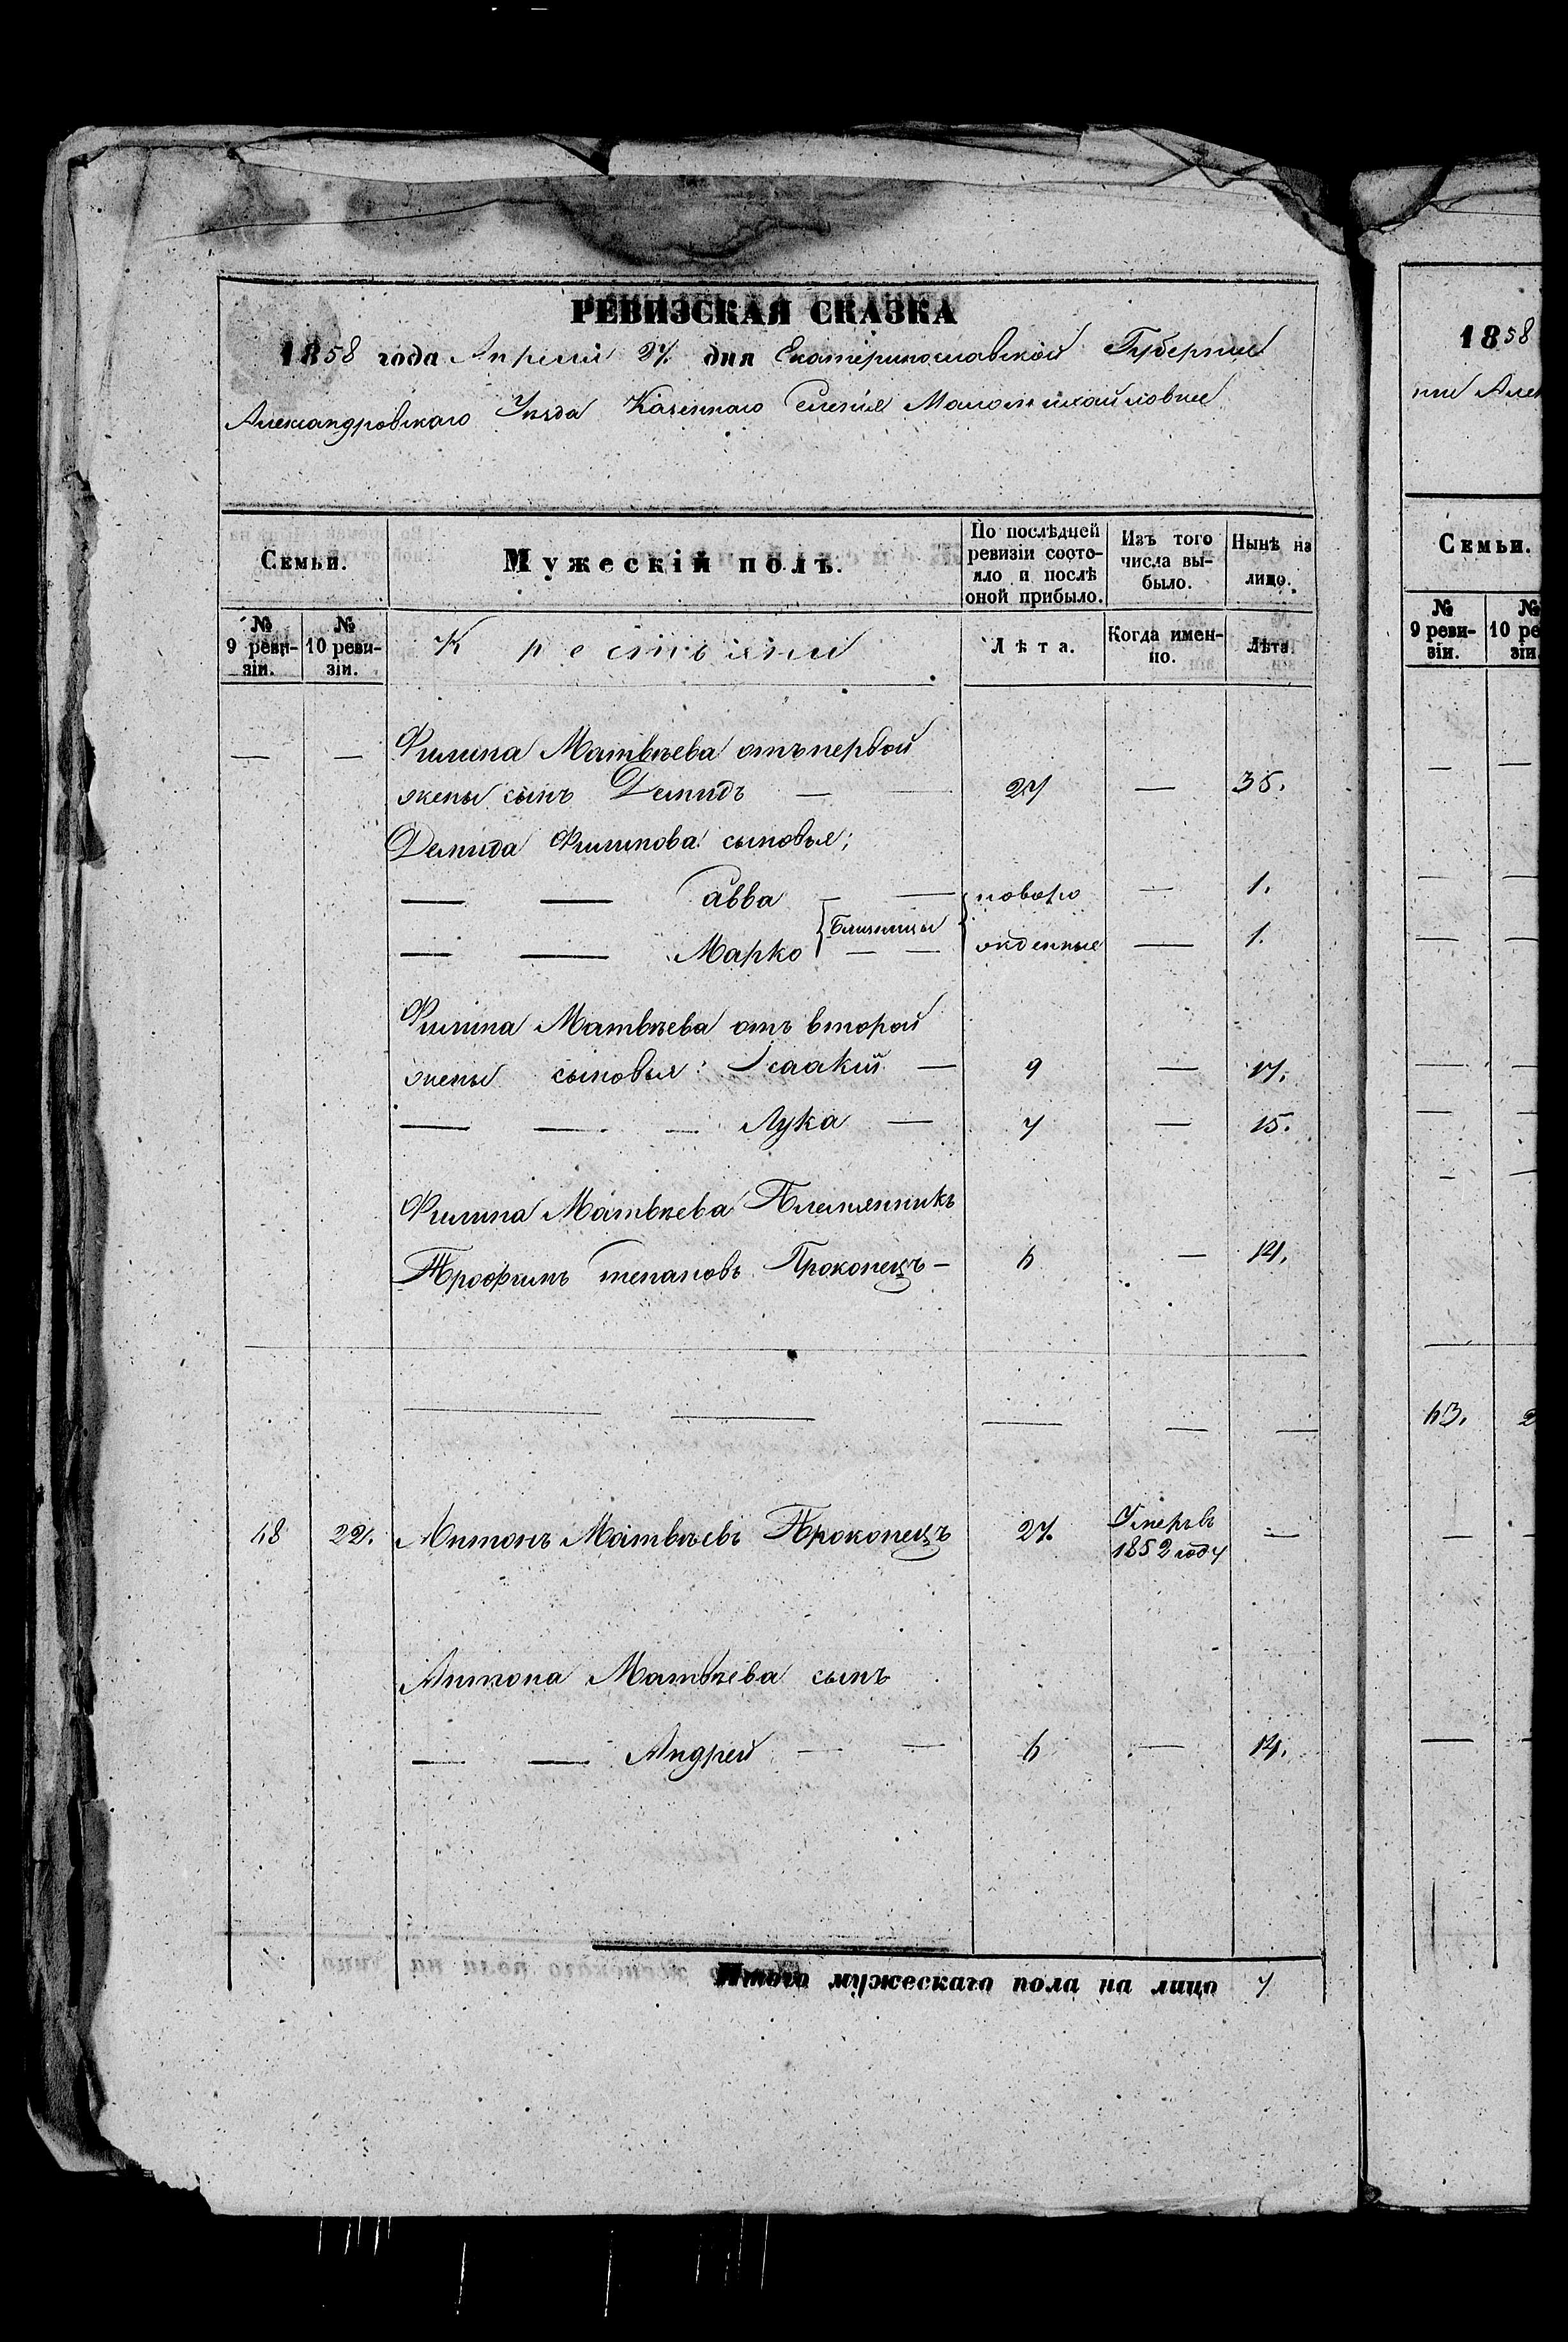 РЕВИЗСКАЯ СКАЗКА
1858 года Апреля 27. дня Екатеринославской Губернии
Александровского Уезда Казенного Селенія Маломихайловки
Семьи.
Мужескій полъ.
По послѣдней ревизіи состояло и послѣ оной прибыло.
Изъ того числа выбыло.
Нынѣ на лицо.
№ 9 ревизіи.
№ 10 ревизіи.
Крестьяне
Лѣта.
Когда именно.
Лѣта.
— — Филипа Матвѣева отъ первой
жены сынъ Демидъ — — 27 — 35.
Демида Филипова сыновья;
— — Савва — новоро — 1.
Близнецы
— — Марко — — жденные — 1.
Филипа Матвѣева отъ второй
жены сыновья: Исаакій — 9 — 17.
— — — Лука — 7 — 15.
Филипа Матвѣева Племянникъ
Трофимъ Степановъ Прокопецъ — 6 — 14.
— — — — —
48 22. Антонъ Матвѣевъ Прокопецъ 27. Умеръ въ 1852 году —
Антона Матвѣева сынъ
— — Андрей — — 6 — 14.
Итого мужескаго пола на лицо 7
1858
нии Алек
Семьи.
№ 9 ревизіи.
№ 10 ре
зіи.